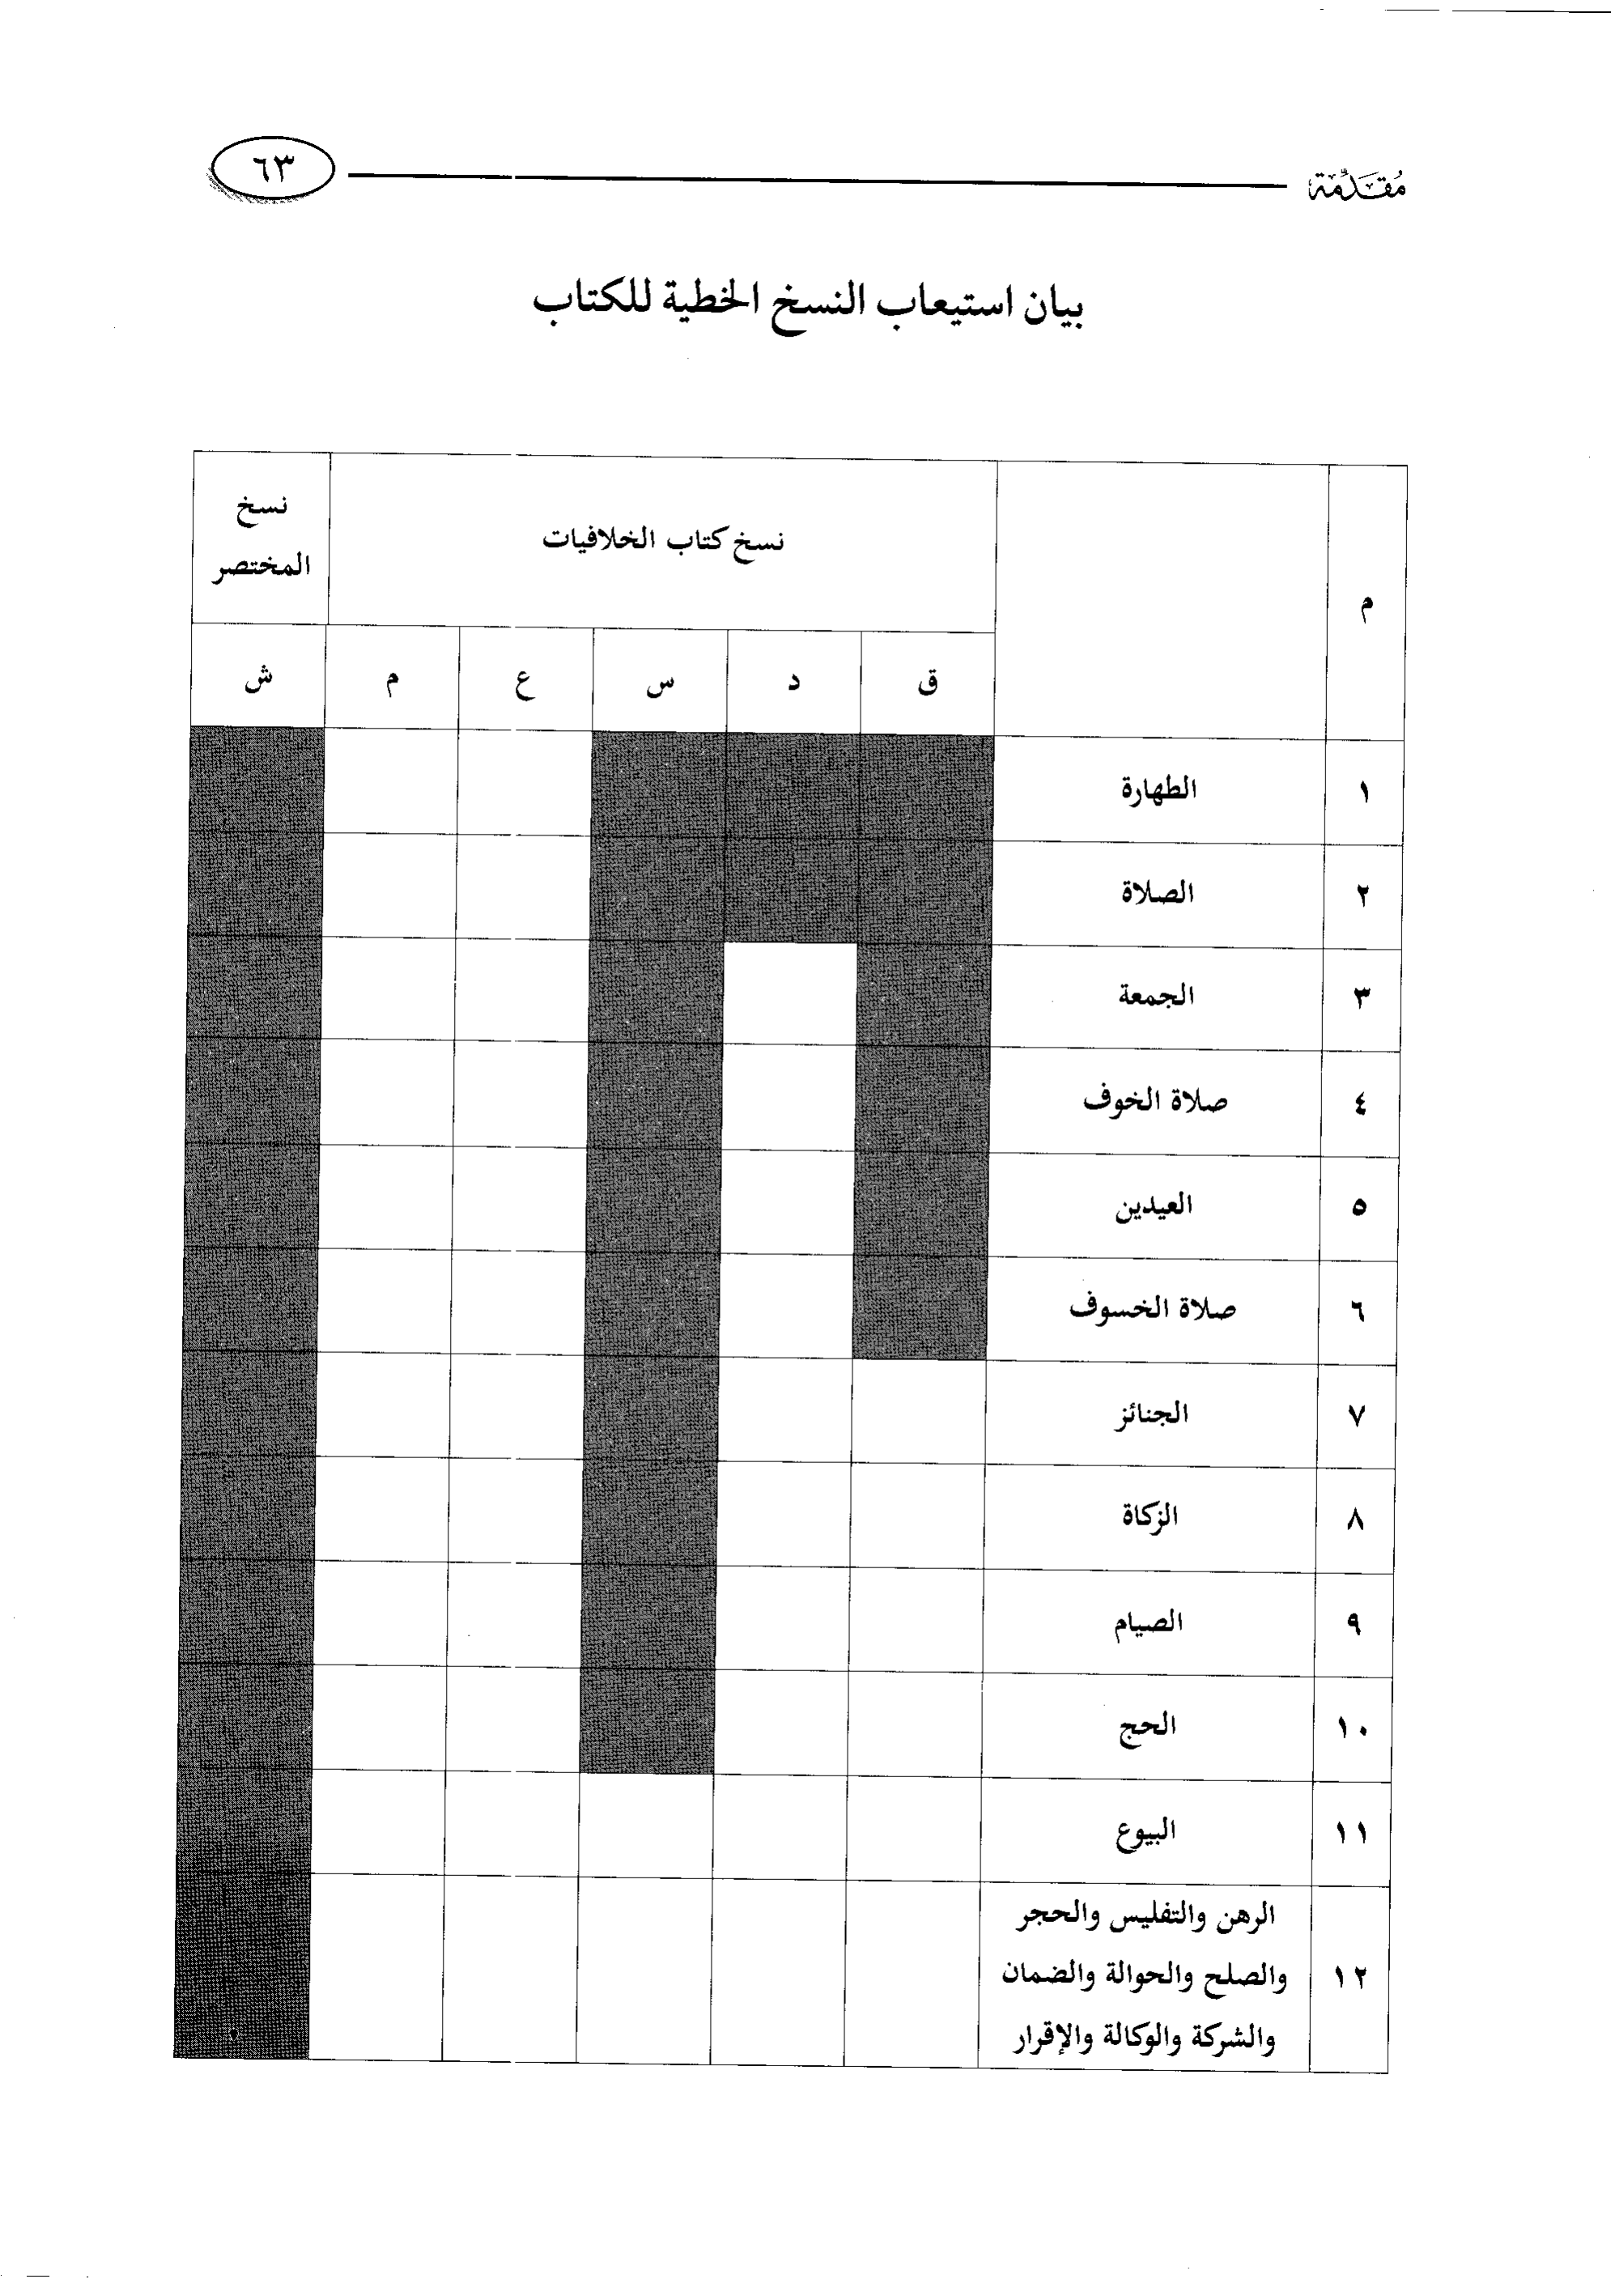 مُقَدِّمَة ٦٣
بيان استيعاب النسخ الخطية للكتاب
م نسخ كتاب الخلافيات نسخ
المختصر
ق د س ع م ش
١ الطهارة
٢ الصلاة
٣ الجمعة
٤ صلاة الخوف
٥ العيدين
٦ صلاة الخسوف
٧ الجنائز
٨ الزكاة
٩ الصيام
١٠ الحج
١١ البيوع
١٢ الرهن والتفليس والحجر
والصلح والحوالة والضمان
والشركة والوكالة والإقرار